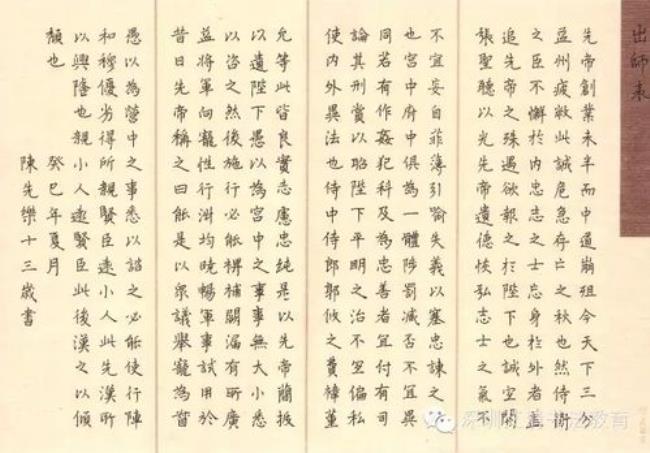 出師表
先帝創業未半而中道崩殂今天下三分
益州疲敝此誠危急存亡之秋也然侍衛
之臣不懈於內忠志之士忘身於外者蓋
追先帝之殊遇欲報之於陛下也誠宜開
張聖聽以光先帝遺德恢弘志士之氣不
不宜妄自菲薄引喻失義以塞忠諫之路
也宮中府中俱為一體陟罰減否不宜異
同若有作姦犯科及為忠善者宜付有司
論其刑賞以昭陛下平明之治不宜偏私
使內外異法也侍中侍郎郭攸之費禕董
允等此皆良實志慮忠純是以先帝簡拔
以遺陛下愚以為宮中之事事無大小悉
以咨之然後施行必能裨補闕漏有所廣
益將軍向寵性行淑均曉暢軍事試用於
昔日先帝稱之曰能是以眾議舉寵為督
愚以為營中之事悉以諮之必能使行陣
和穆優劣得所親賢臣遠小人此先漢所
以興隆也親小人遠賢臣此後漢之以傾
頹也
癸巳年夏月
陳先樂十三歲書
深圳書法教育